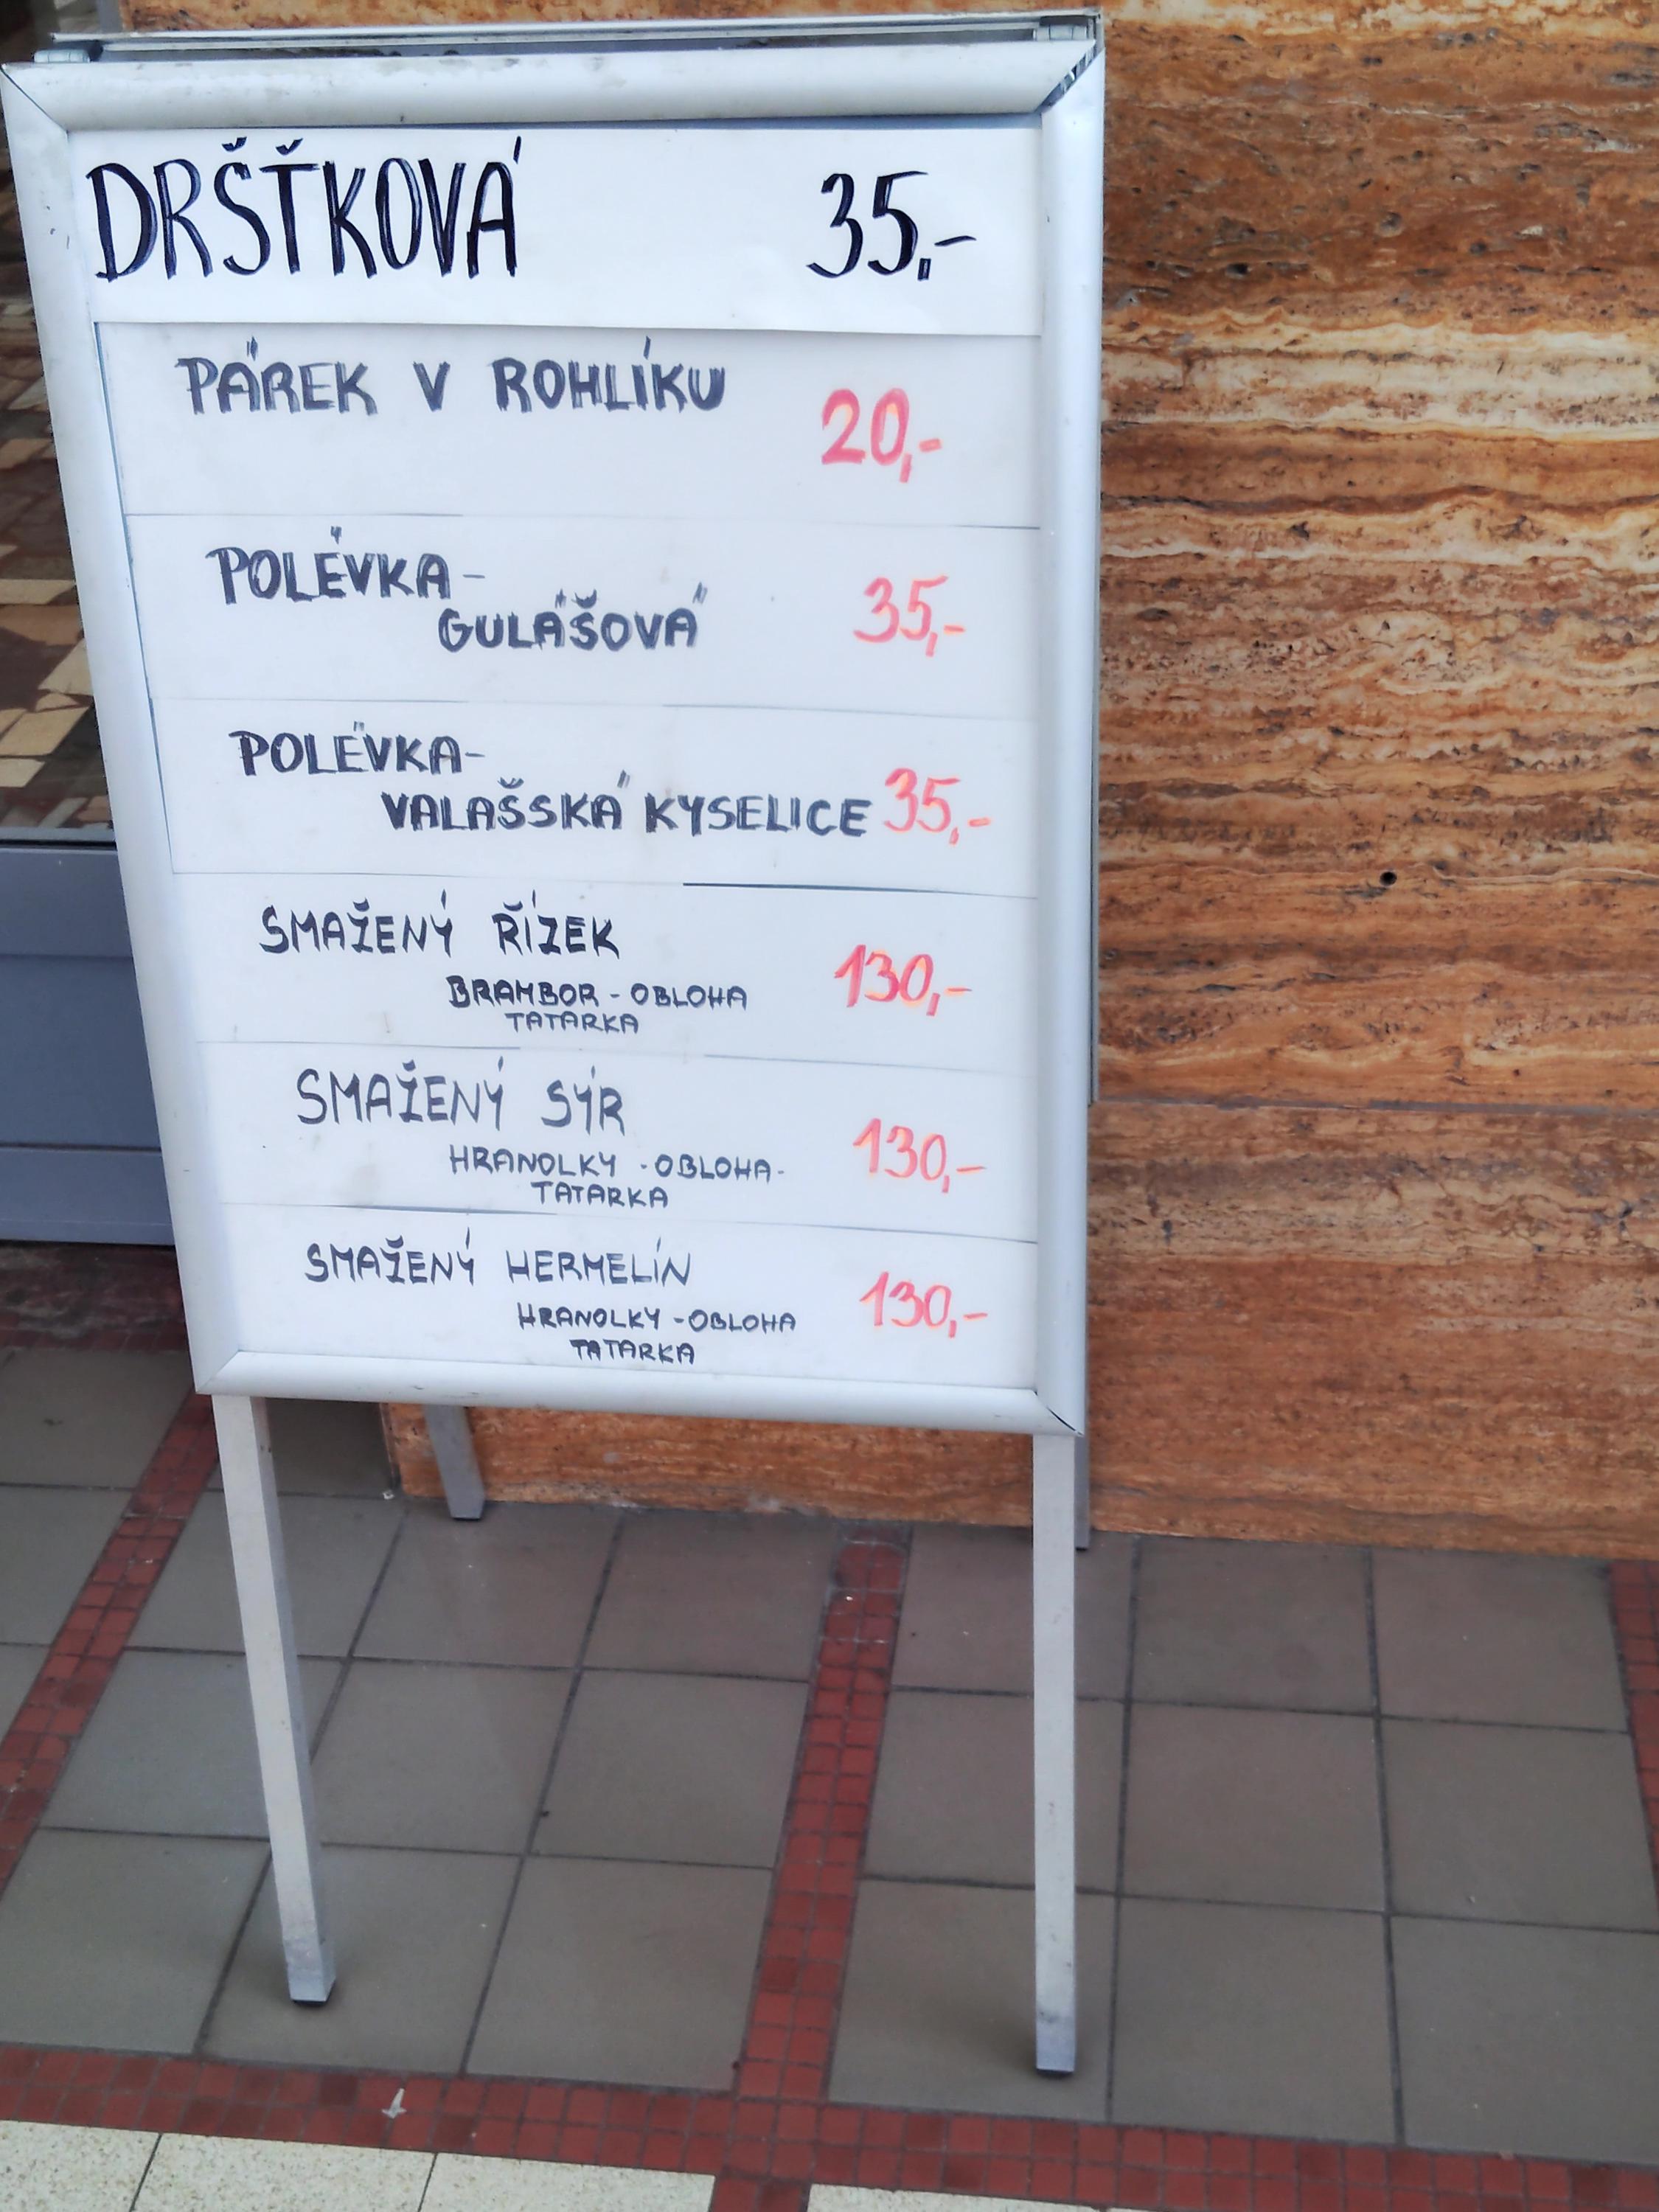 DRŠŤKOVÁ 35,-
PÁREK V ROHLÍKU 20,-
POLÉVKA-
GULÁŠOVÁ 35,-
POLÉVKA-
VALAŠSKÁ KYSELICE 35,-
SMAŽENÝ ŘÍZEK 130,-
BRAMBOR - OBLOHA
TATARKA
SMAŽENÝ SÝR 130,-
HRANOLKY - OBLOHA -
TATARKA
SMAŽENÝ HERMELÍN 130,-
HRANOLKY - OBLOHA
TATARKA